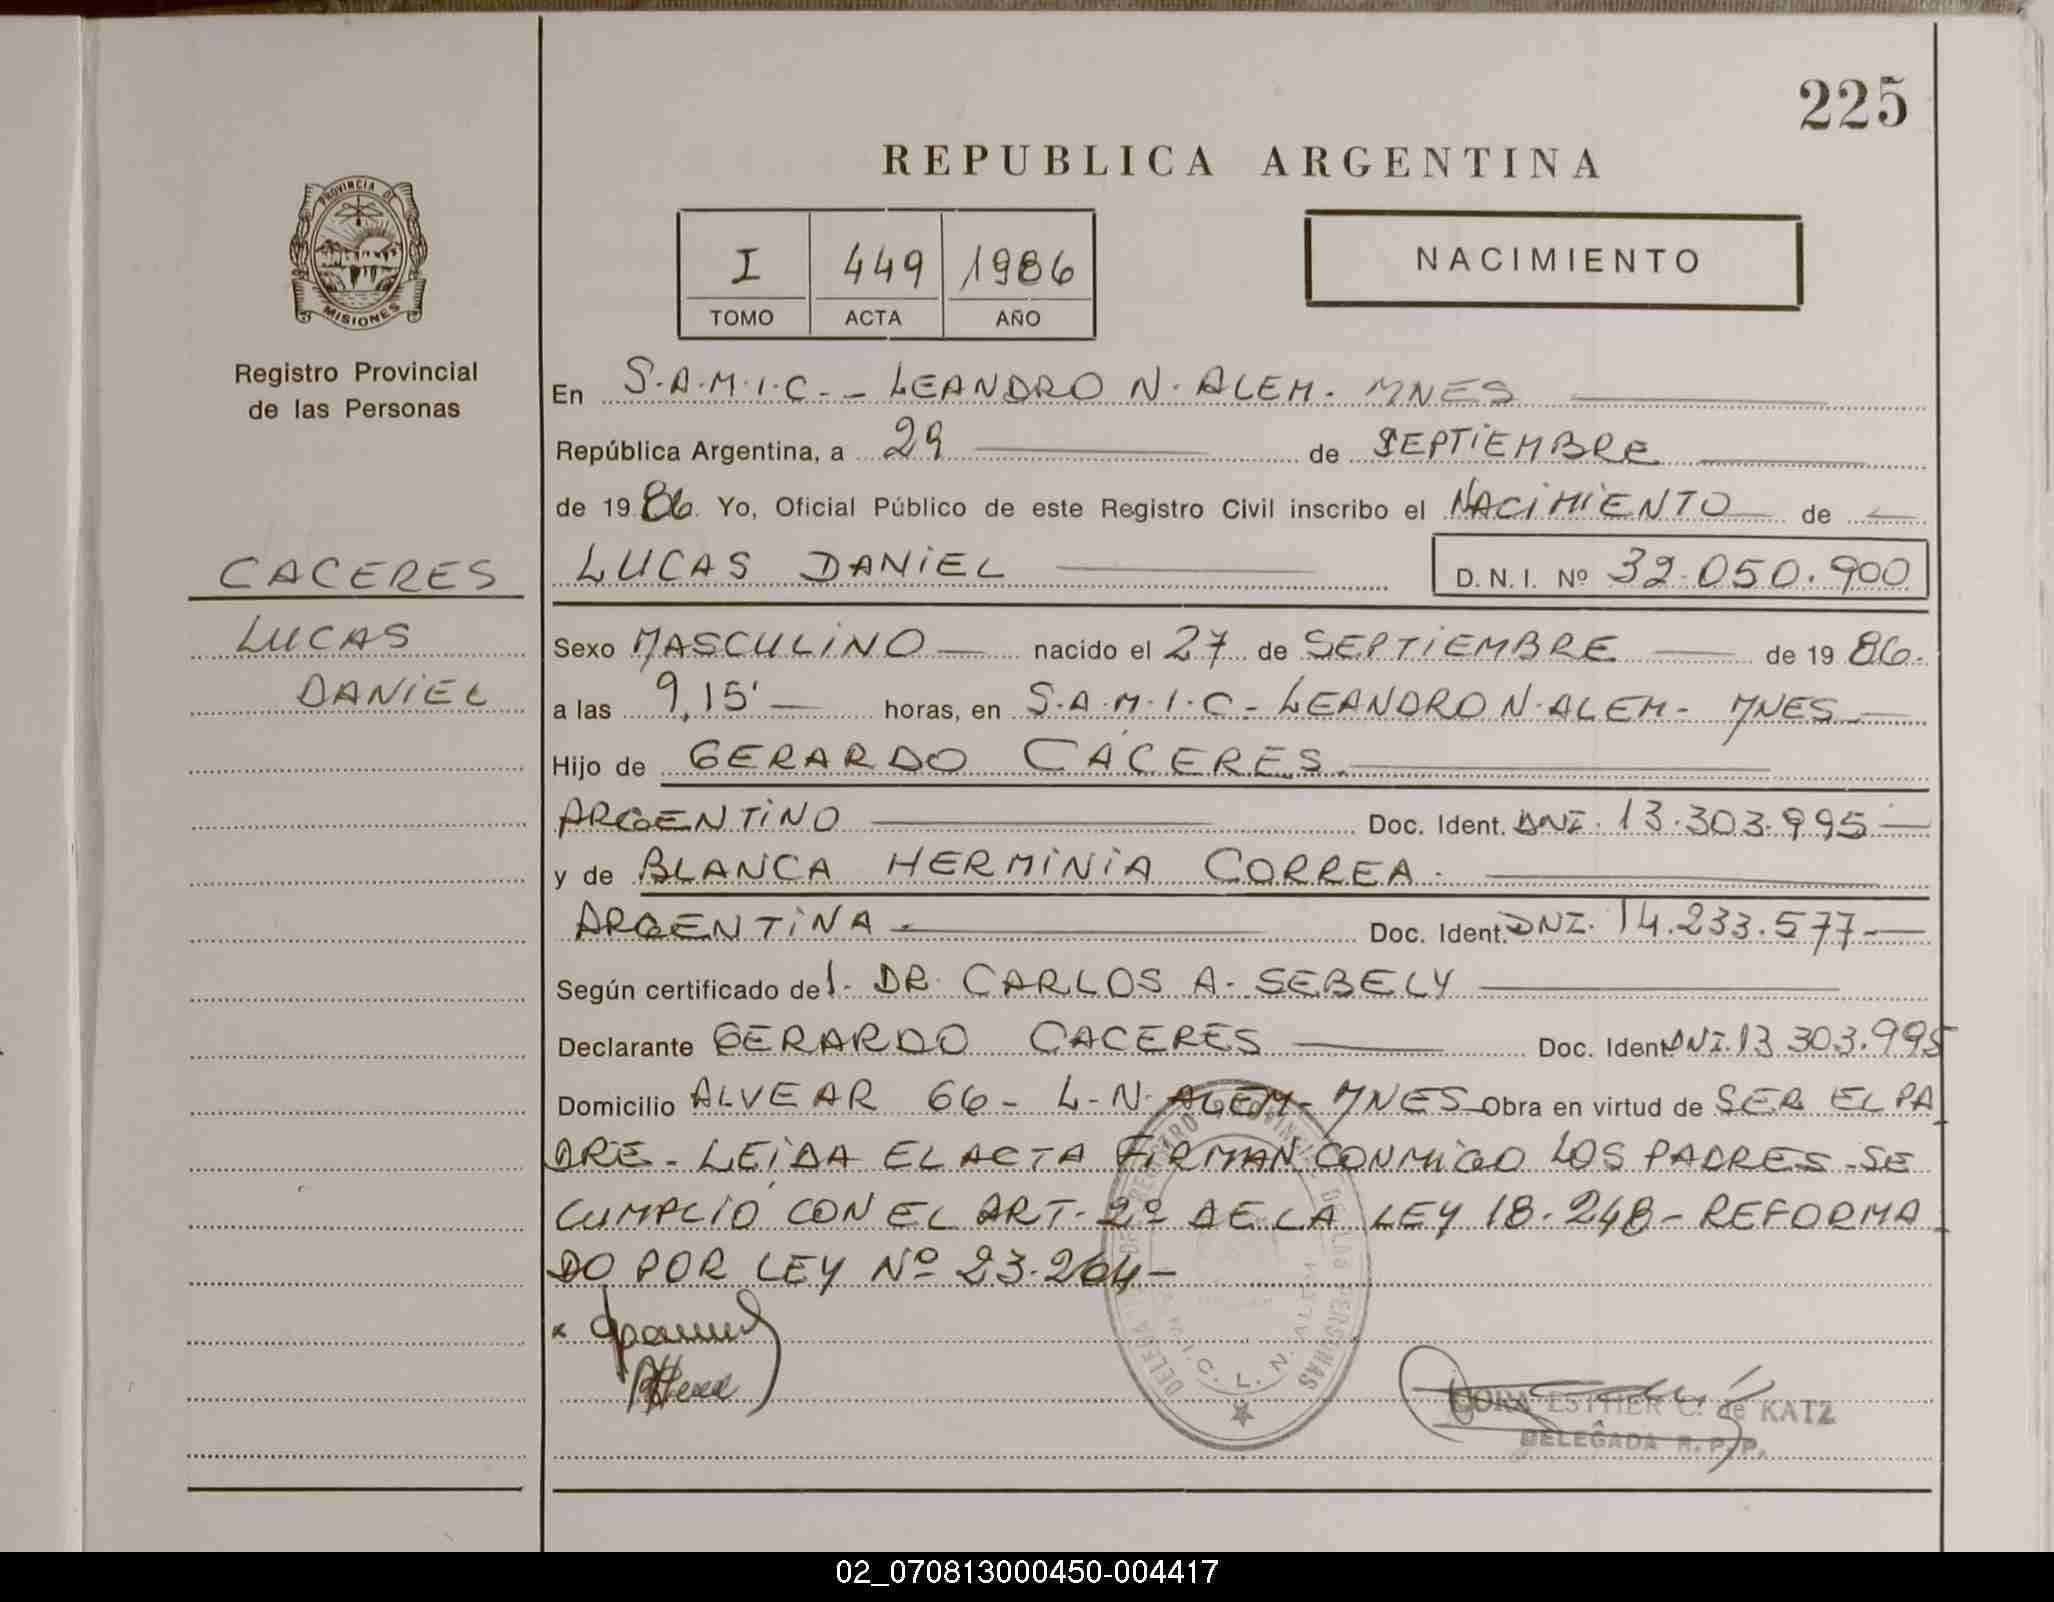 225
REPUBLICA ARGENTINA
PROVINCIA DE
MISIONES
Registro Provincial
de las Personas
I 449 1986
TOMO ACTA AÑO
NACIMIENTO
En S.A.M.I.C. - LEANDRO N. ALEM - MNES
República Argentina, a 29 de SEPTIEMBRE
de 1986. Yo, Oficial Público de este Registro Civil inscribo el NACIMIENTO de
CACERES
LUCAS
DANIEL
LUCAS DANIEL D.N.I. Nº 32.050.900
Sexo MASCULINO nacido el 27 de SEPTIEMBRE de 1986.
a las 9,15' horas, en S.A.M.I.C - LEANDRO N. ALEM - MNES
Hijo de GERARDO CACERES
ARGENTINO Doc. Ident. DNI. 13.303.995
y de BLANCA HERMINIA CORREA.
ARGENTINA. Doc. Ident. DNI. 14.233.577
Según certificado del. DR. CARLOS A. SEBELY
Declarante GERARDO CACERES Doc. Ident DNI. 13 303.995
Domicilio ALVEAR 66 - L.N. ALEM - MNES Obra en virtud de SER EL PA
DRE - LEIDA EL ACTA FIRMAN CONMIGO LOS PADRES - SE
CUMPLIO CON EL ART. 2º DE LA LEY 18.248 - REFORMA
DO POR LEY Nº 23.264 -
DELEGA REGISTRO PROVINCIAL DE LAS PERSONAS
L. N. ALEM
ESTHER C. de KATZ
DELEGADA R. P. P.
02_070813000450-004417